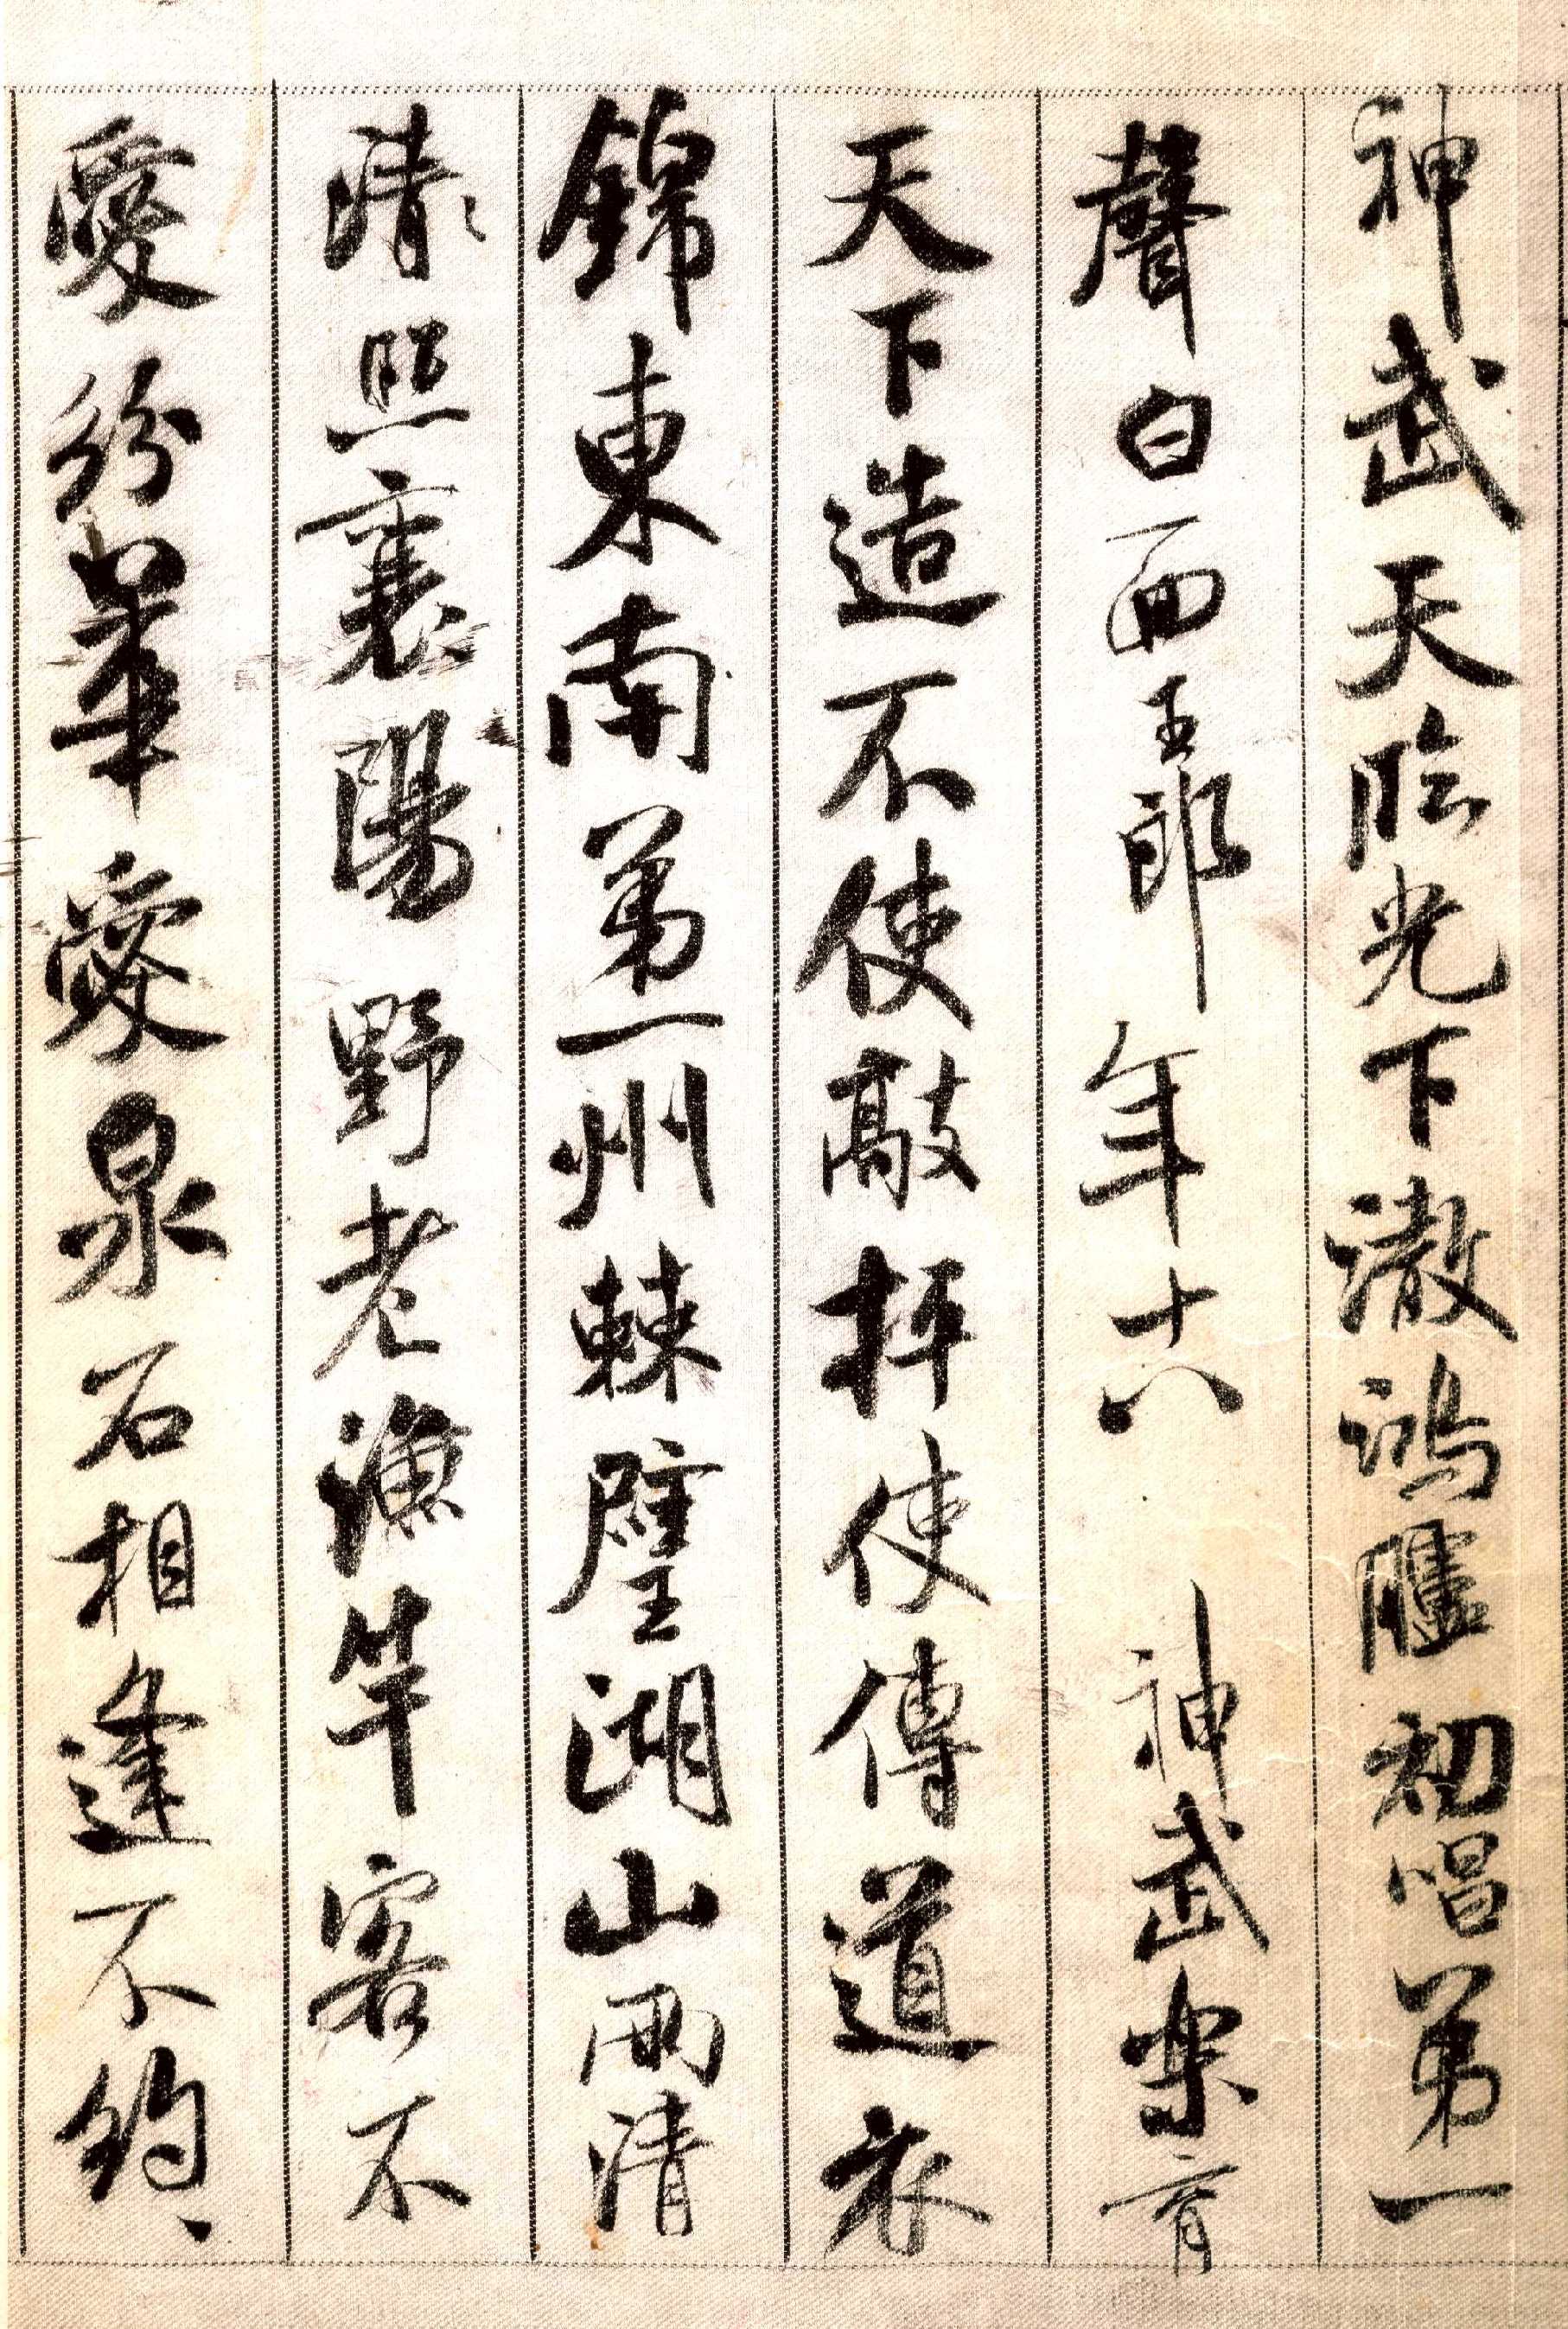 神武天臨光下澈鴻臚初唱第一
聲白面王郎年十八 神武樂育
天下造不使敲抨使傳道衣
錦東南第一州棘璧湖山兩清
清照襄陽野老漁竿客不
愛紛華愛泉石相逢不約、